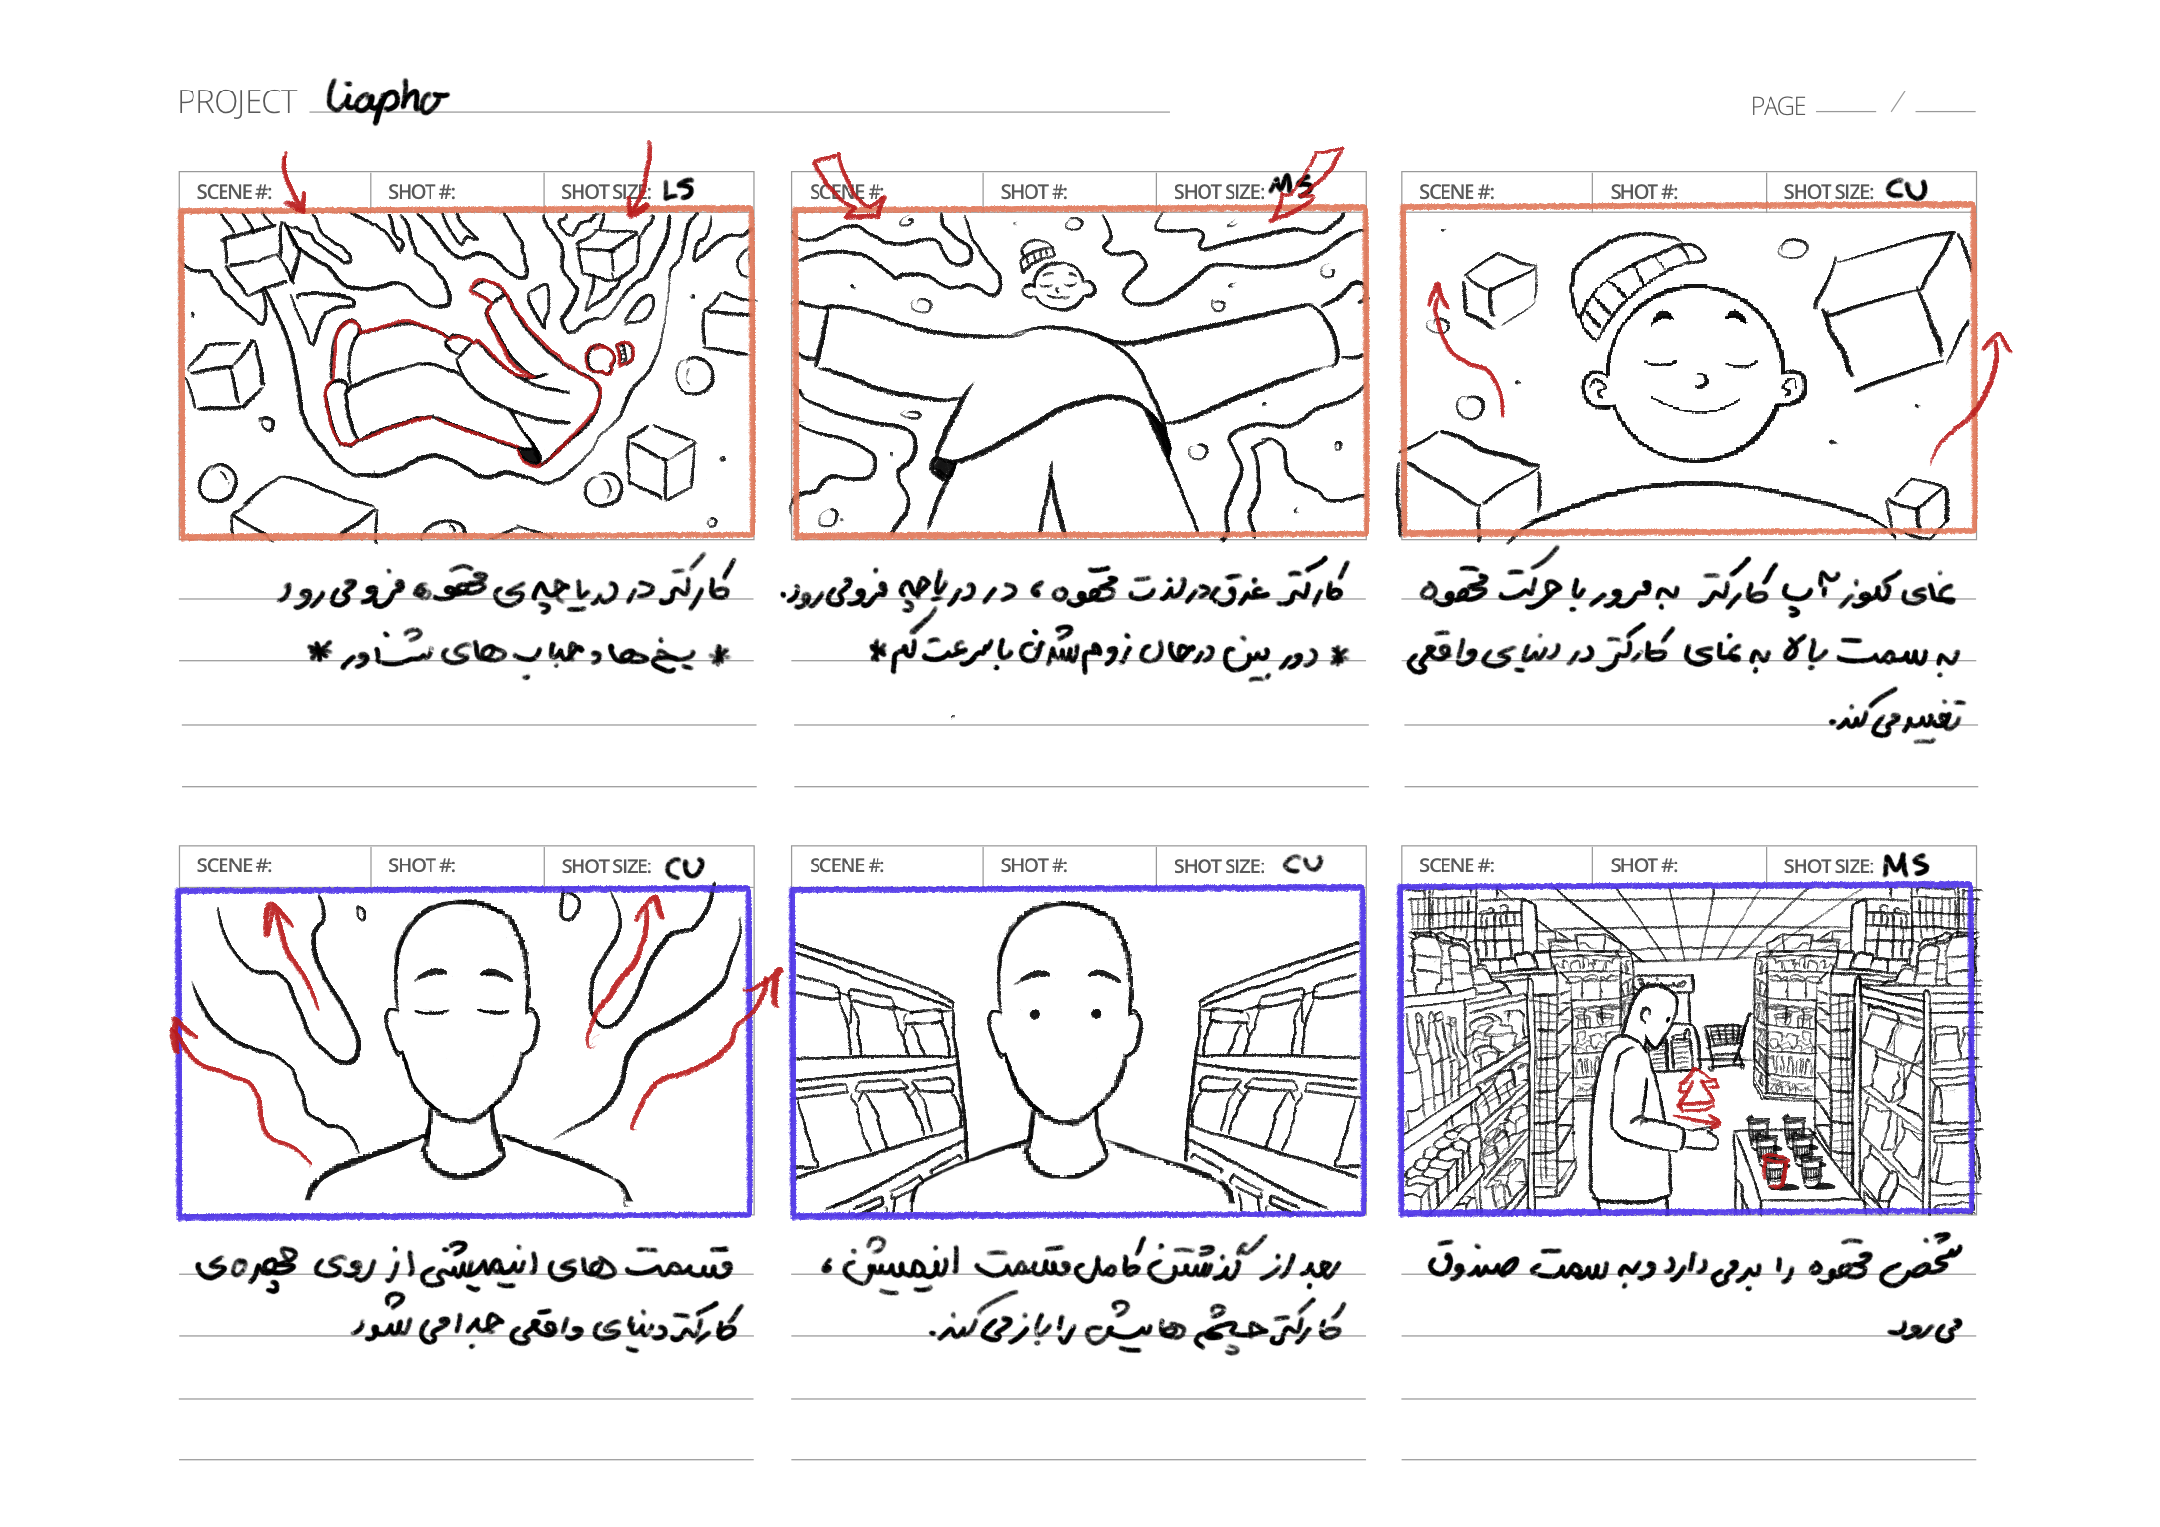 PROJECT Liapho
PAGE /
SCENE #: SHOT #: SHOT SIZE: LS
کارکتر در دریاچه ی قهوه فرو می رود
* یخ ها و حباب های شناور *
SCENE #: SHOT #: SHOT SIZE: MS
کارکتر غرق در لذت قهوه، در دریاچه فرو می رود.
* دوربین در حال زوم شدن با سرعت کم *
SCENE #: SHOT #: SHOT SIZE: CU
نمای کلوز آپ کارکتر به مرور با حرکت قهوه
به سمت بالا به نمای کارکتر در دنیای واقعی
تغییر می کند.
SCENE #: SHOT #: SHOT SIZE: CU
قسمت های انیمیشنی از روی چهره ی
کارکتر دنیای واقعی جدا می شود
SCENE #: SHOT #: SHOT SIZE: CU
بعد از گذشتن کامل قسمت انیمیشن،
کارکتر چشم هایش را باز می کند.
SCENE #: SHOT #: SHOT SIZE: MS
شخص قهوه را بر می دارد و به سمت صندوق
می رود